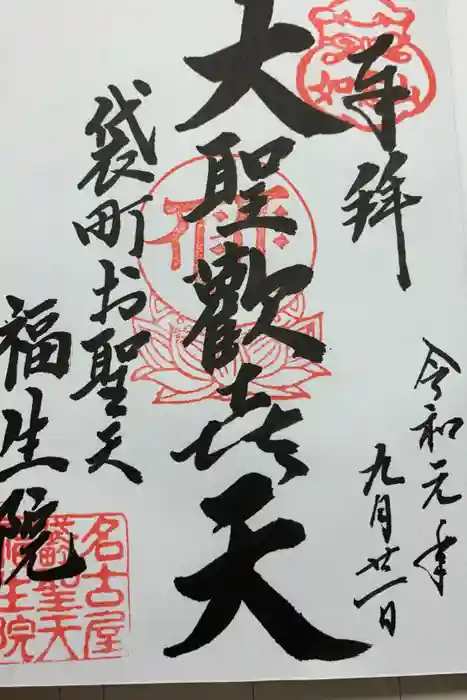 奉拝
令和元年
九月廿一日
大聖歡喜天
袋町お聖天
福生院
名古屋
袋町聖天
福生院